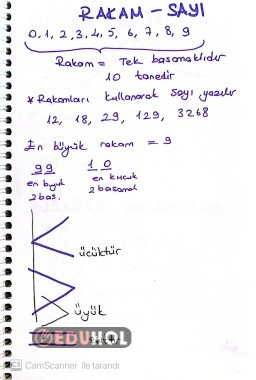 RAKAM - SAYI
0, 1, 2, 3, 4, 5, 6, 7, 8, 9
Rakam = Tek basamaklıdır
10 tanedir
* Rakamları kullanarak sayı yazılır
12, 18, 29, 129, 3268
En büyük rakam = 9
99 10
en büyük en küçük
2 bas. 2 basamak
üçüktür
üyük
EDUHOL
CS CamScanner ile tarandı